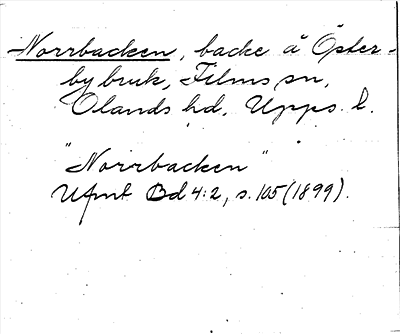 Norrbacken, backe å Öster-
by bruk, Films sn,
Olands hd, Upps. l.
"Norrbacken"
Ufmt Bd 4:2, s. 105 (1899).